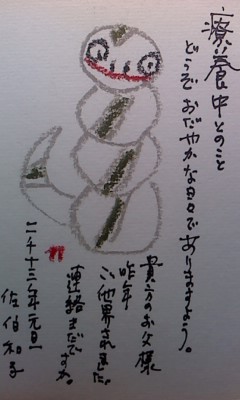 療養中とのこと
どうぞおだやかな日々でありますよう。
貴方のお父様
昨年
ご他界されました。
連絡まだですか。
二千十三年元旦
佐伯和子